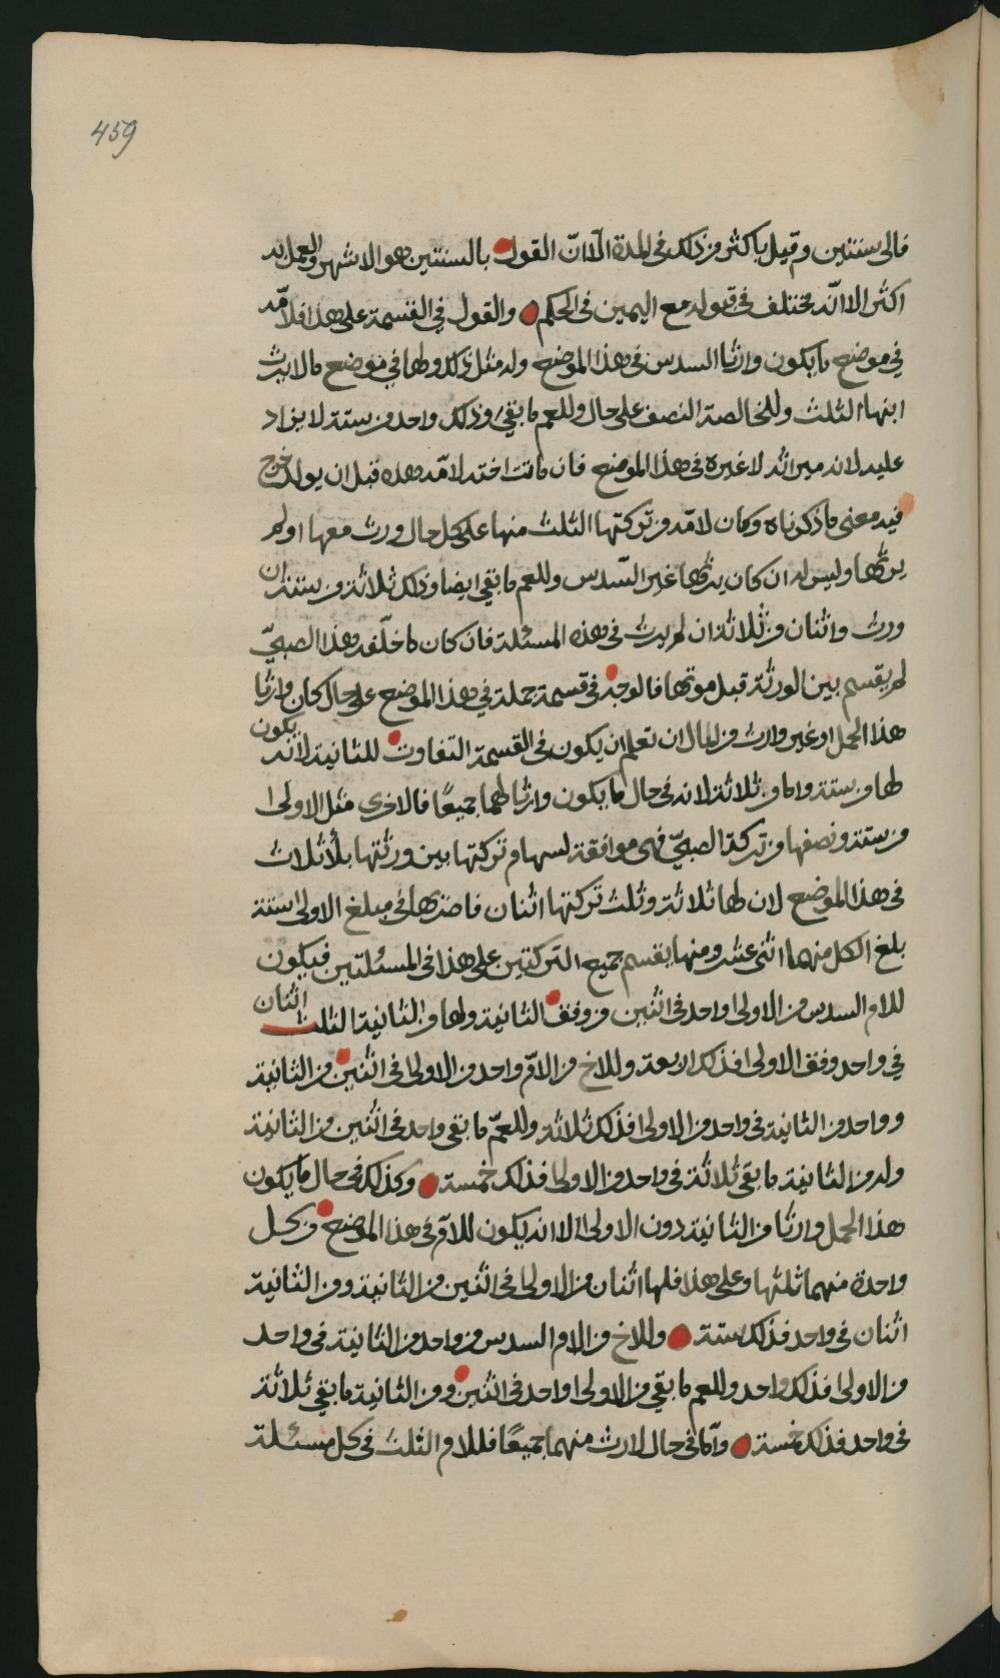 459
فالى سنتين وقيل باكثر من ذلك فى المدة الا ان القول بالسنتين هو الاشهر والعمل به
اكثر الا انه مختلف فى قبوله مع اليمين فى الحكم والقول فى القسمة على هذا فلامه
في موضع ما يكون وارثا السدس فى هذا الموضع وله مثل ذلك ولها في موضع ما لا يرث
ابنها الثلث وللخالصة النصف على حال وللعم ما بقي وذلك واحد من ستة لا يزاد
عليه لانه ميراثه لا غيره فى هذا الموضع فان ماتت اخته لامه هذه قبل ان يولد خرج
فيه معنى ما ذكرناه وكان لامه من تركتها الثلث منها على كل حال ورث معها او لم
يرثها وليس له ان كان يرثها غير السدس وللعم ما بقي ايضا وذلك ثلاثة من ستة ان
ورث واثنان من ثلاثة ان لم يرث فى هذه المسئلة فان كان ما خلفه هذا الصبي
لم يقسم بين الورثة قبل موتها فالوجه فى قسمة جملة في هذا الموضع على حال كان وارثا
هذا الحمل او غير وارث من المال ان تعلم ان يكون فى القسمة التفاوت للثانية لانه يكون
لها من ستة واما من ثلاثة لانه فى حال ما يكون وارثا لهما جميعًا فالاخرى مثل الاولى
من ستة ونصفها من تركة الصبي فهى موافقة لسهام تركتها بين ورثتها بالأثلاث
فى هذا الموضع لان لها ثلاثة وثلث تركتها اثنان فاضربها فى مبلغ الاولى ستة
بلغ الكل منهما اثنى عشر ومنها يقسم جميع التركتين على هذا فى المسئلتين فيكون
للام السدس من الاولى واحد فى اثنين من وفق الثانية ولها من الثانية الثلث اثنان
في واحد وفق الاولى فذلك اربعة وللاخ من الام واحد من الاولى فى اثنين من الثانية
وواحد من الثانية فى واحد من الاولى فذلك ثلاثة وللعمّ ما بقى واحد فى اثنين من الثانية
وله من الثانية ما بقى ثلاثة فى واحد من الاولى فذلك خمسة وكذلك فى حال ما يكون
هذا الحمل وارثا من الثانية دون الاولى الا انه يكون للام فى هذا الموضع من كل
واحدة منهما ثلثها وعلى هذا فلها اثنان من الاولى فى اثنين من الثانية ومن الثانية
اثنان فى واحد فذلك ستة وللاخ من الام السدس من واحد من الثانية فى واحد
من الاولى فذلك واحد وللعم ما بقي من الاولى واحد فى اثنين ومن الثانية ما بقي ثلاثة
فى واحد فذلك خمسة واما فى حال لا يرث منهما جميعًا فللام الثلث فى كل مسئلة